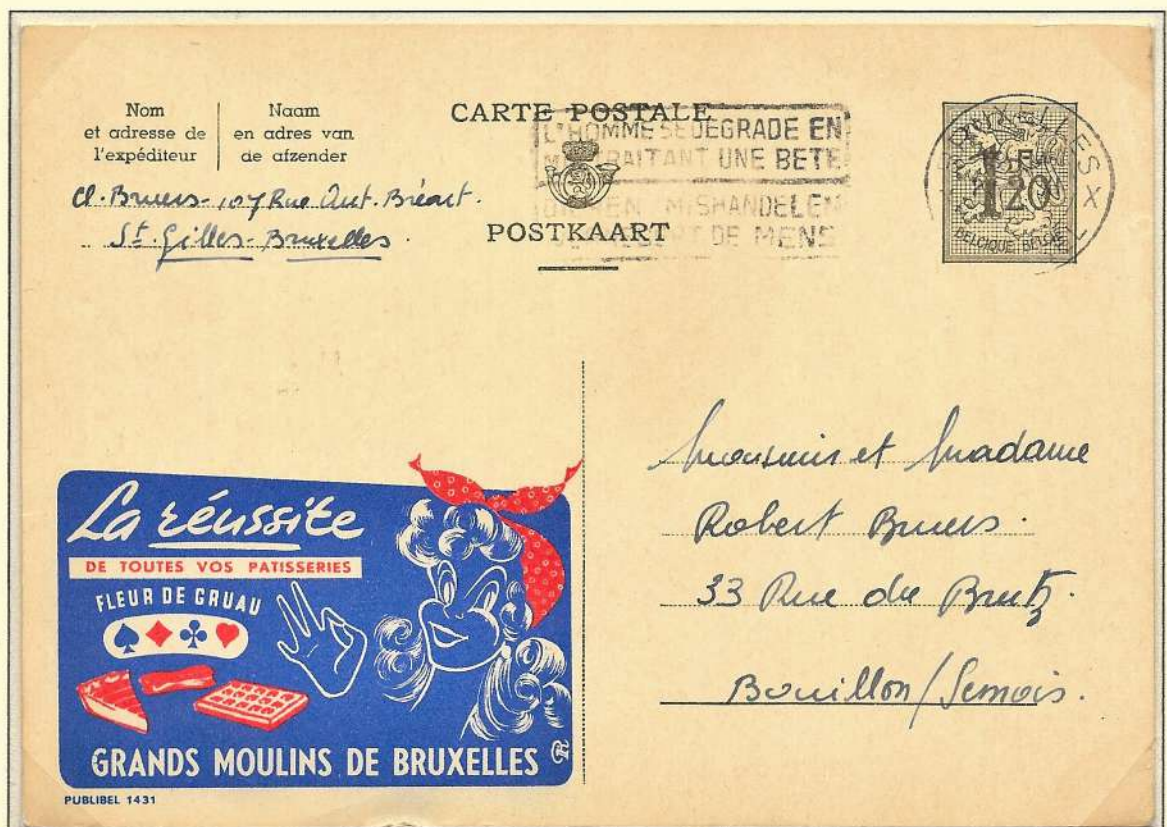 Nom
et adresse de
l'expéditeur
Naam
en adres van
de afzender
CARTE POSTALE
L'HOMME SE DEGRADE EN
MALTRAITANT UNE BETE
MISHANDELEN
DE MENS
POSTKAART
BRUXELLES X
1F20
BELGIQUE-BELGIE
Cl. Bruers-107 Rue Ant. Bréart.
St. Gilles-Bruxelles.
Monsieur et Madame
Robert Bruers.
33 Rue du Brutz.
Bouillon/Semois.
La réussite
DE TOUTES VOS PATISSERIES
FLEUR DE GRUAU
GRANDS MOULINS DE BRUXELLES
PUBLIBEL 1431